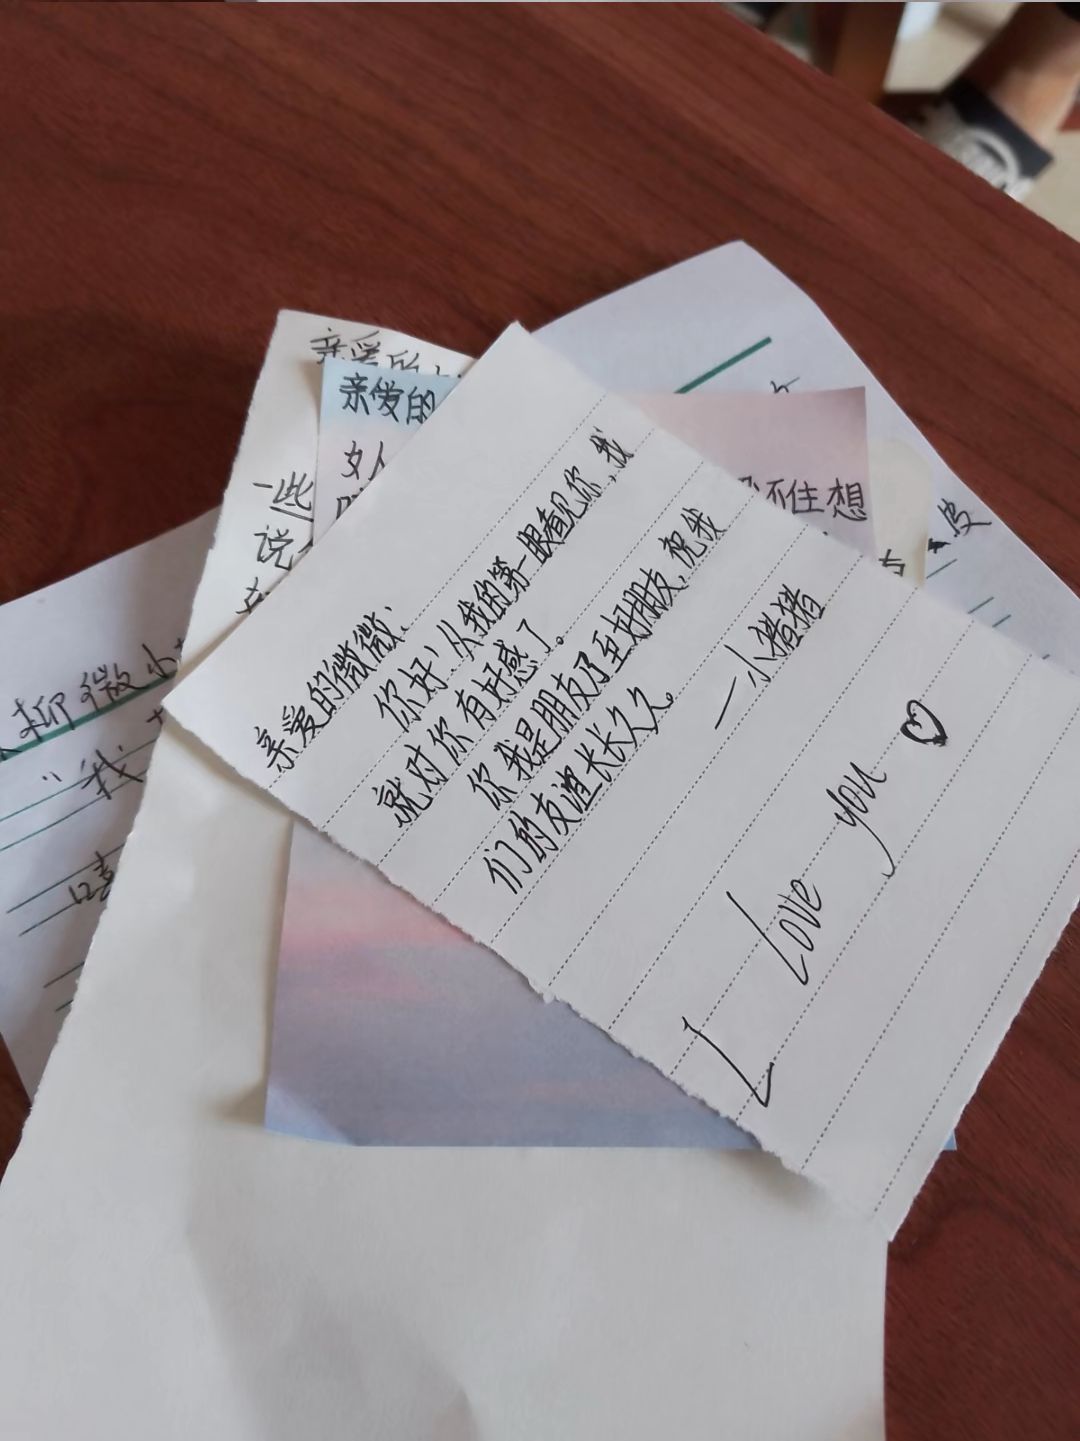 亲爱的微微:
你好!从我的第一眼看见你,我
就对你有好感了。
你我是朋友乃至好朋友,祝我
们的友谊长长久久。
—小猪猪
I Love you ♡
亲爱的
亲爱的
女人
一些
说
不住想
柳微
"我
皮